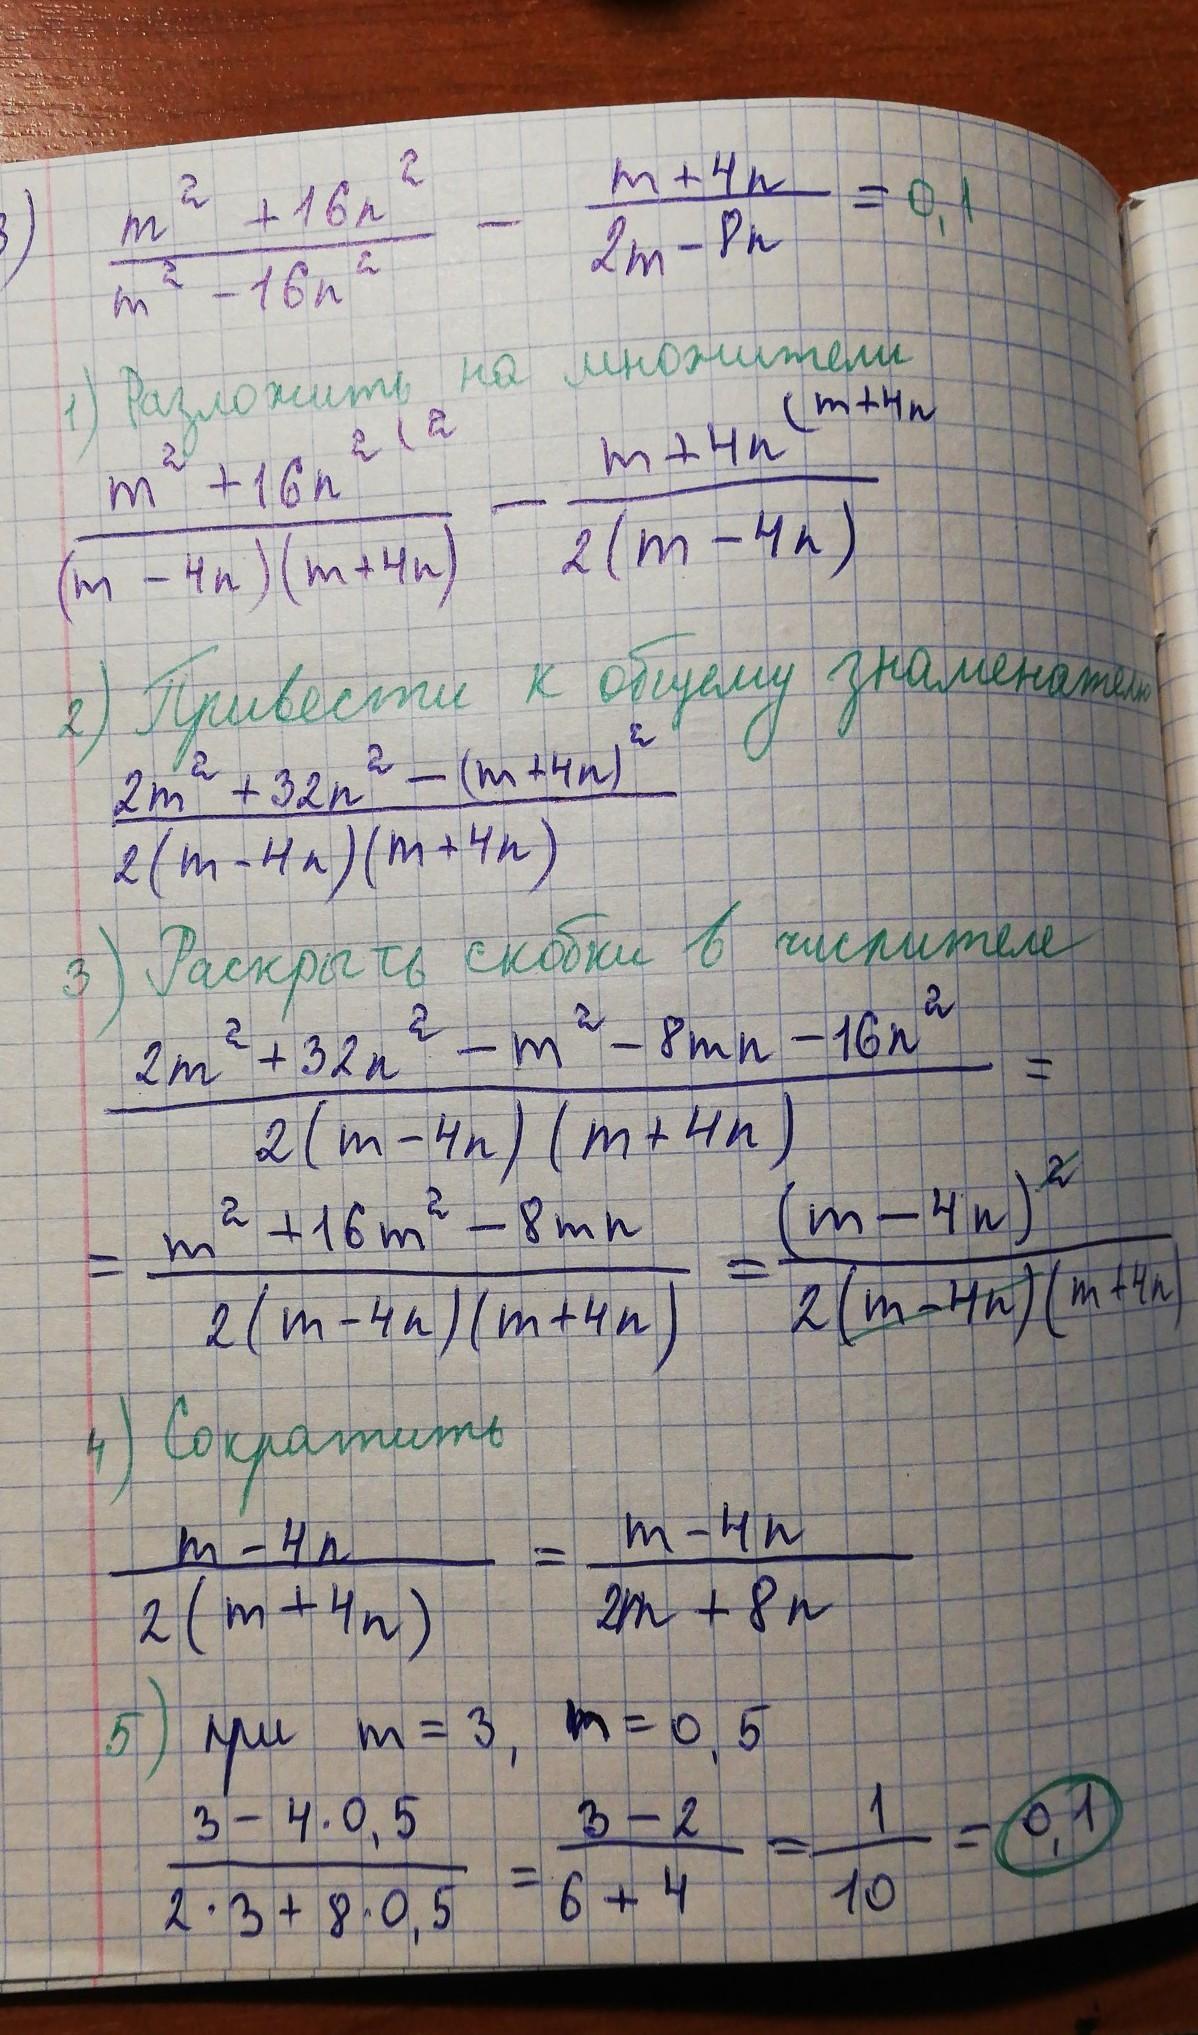 3) m² + 16n² / m² - 16n² - m + 4n / 2m - 8n = 0,1
1) Разложить на множители
m² + 16n² (2 / (m - 4n)(m + 4n) - m + 4n (m + 4n / 2(m - 4n)
2) Привести к общему знаменателю
2m² + 32n² - (m + 4n)² / 2(m - 4n)(m + 4n)
3) Раскрыть скобки в числителе
2m² + 32n² - m² - 8mn - 16n² / 2(m - 4n)(m + 4n) =
= m² + 16m² - 8mn / 2(m - 4n)(m + 4n) = (m - 4n)² / 2(m - 4n)(m + 4n)
4) Сократить
m - 4n / 2(m + 4n) = m - 4n / 2m + 8n
5) при m = 3, m = 0,5
3 - 4·0,5 / 2·3 + 8·0,5 = 3 - 2 / 6 + 4 = 1 / 10 = 0,1